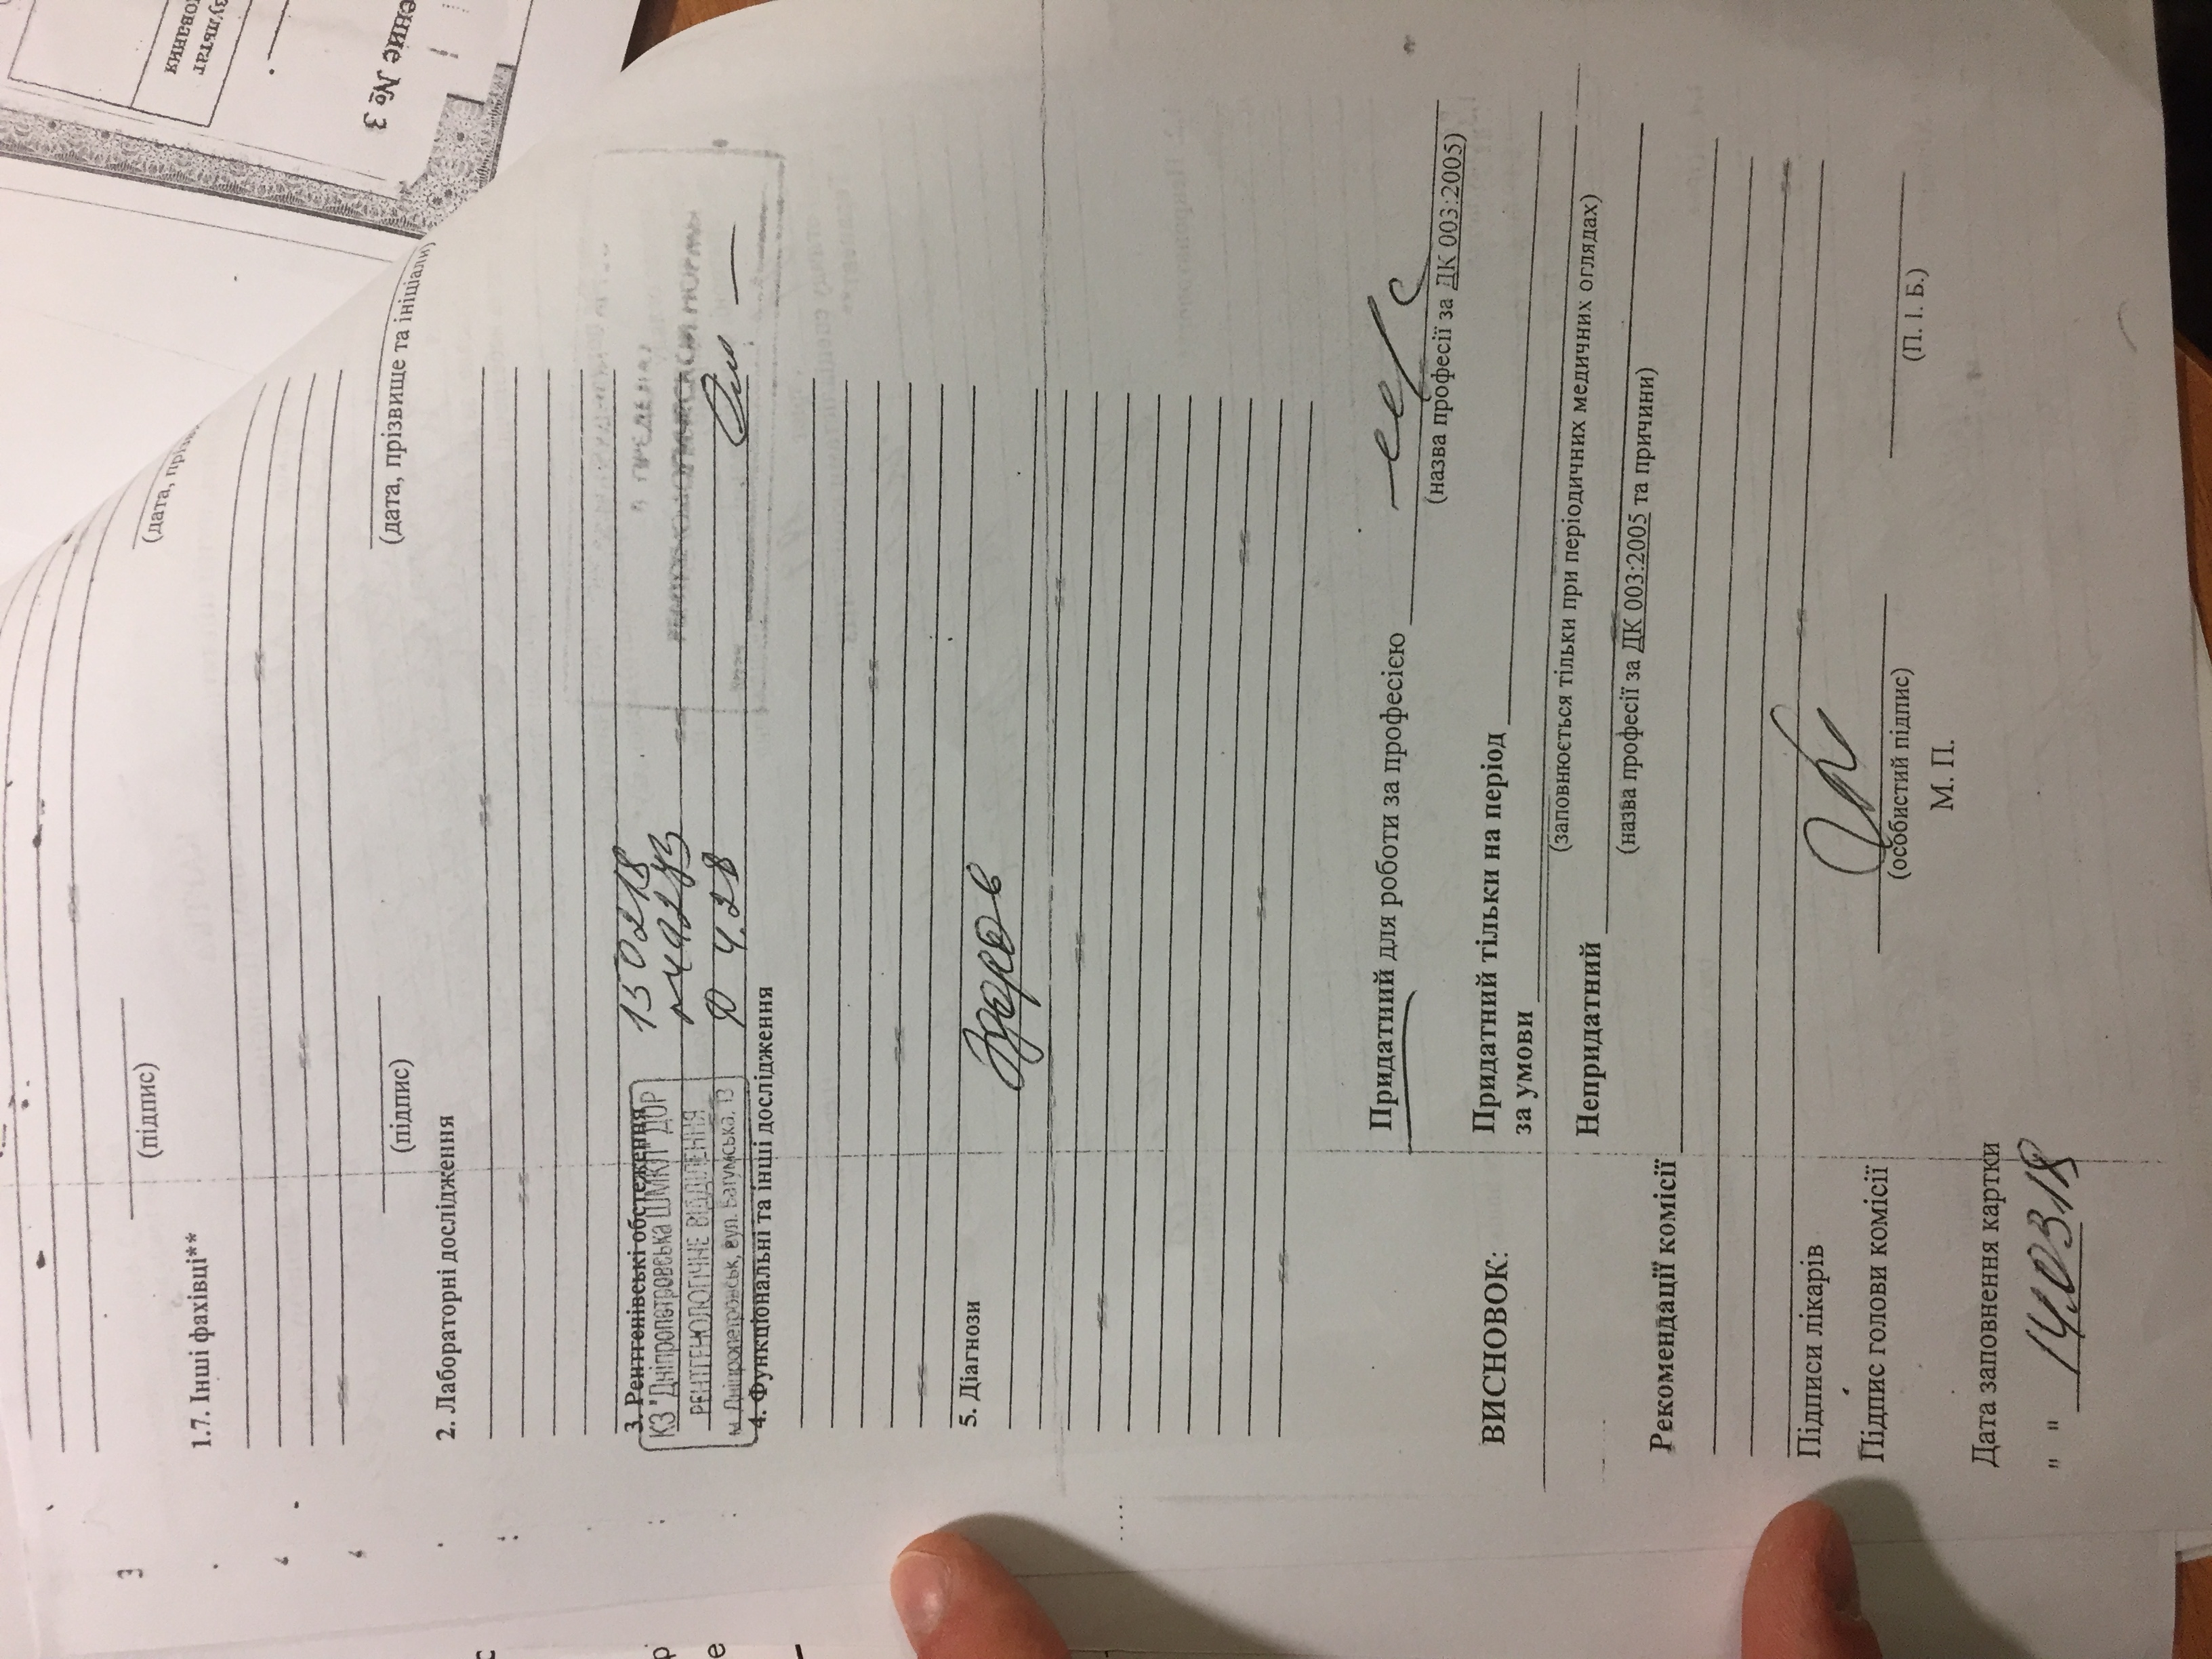 3
1.7. Інші фахівці**
(підпис)
(дата,
(підпис)
(дата, прізвище та ініціали)
2. Лабораторні дослідження
3. Рентгенівські обстеження
КЗ "Дніпропетровська ЦМКЛ" ДОР
РЕНТГЕНОЛОГІЧНЕ ВІДДІЛЕННЯ
м. Дніпропетровськ, вул. Батумська, 13
130218
4. Функціональні та інші дослідження
5. Діагнози
Здоров
ВИСНОВОК:
Придатний для роботи за професією
(назва професії за ДК 003:2005)
Придатний тільки на період
за умови
(заповнюється тільки при періодичних медичних оглядах)
Непридатний
(назва професії за ДК 003:2005 та причини)
Рекомендації комісії
Підписи лікарів
Підпис голови комісії
(особистий підпис)
(П. І. Б.)
М. П.
Дата заповнення картки
" " 140318
ение № 3